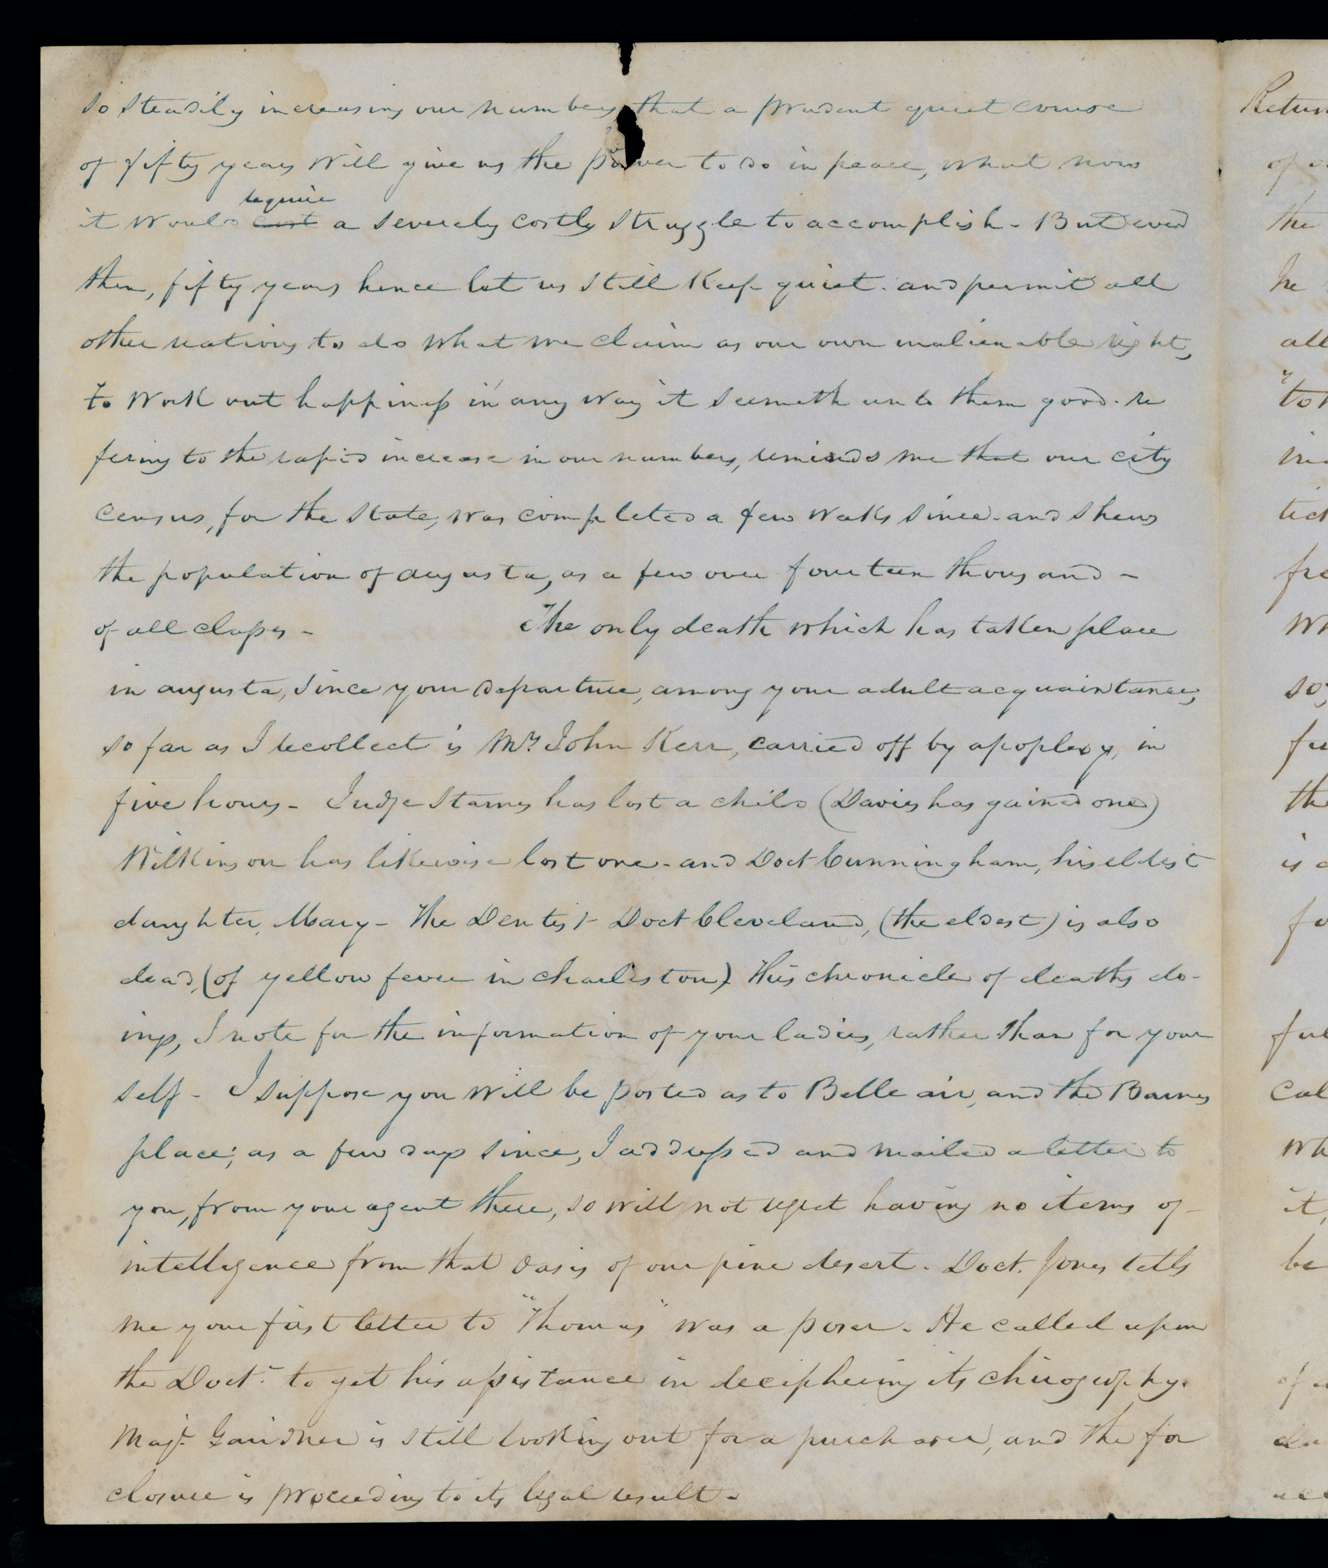 so steadily increasing our numbers that a prudent quiet course
of fifty years will give us the power to do in peace, what now
require
it would cost a severely costly struggle to accomplish. But even
then, fifty years hence let us still keep quiet. and permit all
other nations to do what we claim as our own inalienable right,
to work out happiness in any way it seemeth unto them good. re
fering to the rapid increase in our numbers, reminds me that our city
census, for the State, was completed a few weeks since. and shews
the population of augusta, as a few over fourteen thousand -
of all classes - The only death which has taken place
in augusta, since your departure, among your adult acquaintances,
so far as I recollect is Mr. John Kerr, carried off by apoplexy, in
five hours - Judge Starnes has lost a child (Davies has gained one)
Wilkinson has likewise lost one. and Doct Cunningham, his eldest
daughter, Mary - The Dentist Doct Cleveland, (the eldest) is also
dead, (of yellow fever in charleston) This chronicle of deaths do-
ings, I note for the information of your ladies, rather than for your
self - I suppose you will be posted as to Belle air, and the Barnes
place; as a few days since, I addressed and mailed a letter to
you, from your agent there, so will not regret having no items of
intelligence from that oasis of our pine desert. Doct. Jones tells
me your first letter to "Thomas" was a poser. He called upon
the Doct. to get his assistance in deciphering its chirography.
Majr. Gairdner is still looking out for a purchaser, and the for
closure is proceeding to its legal result -
Return
the
he
all
so,
the
it,
be